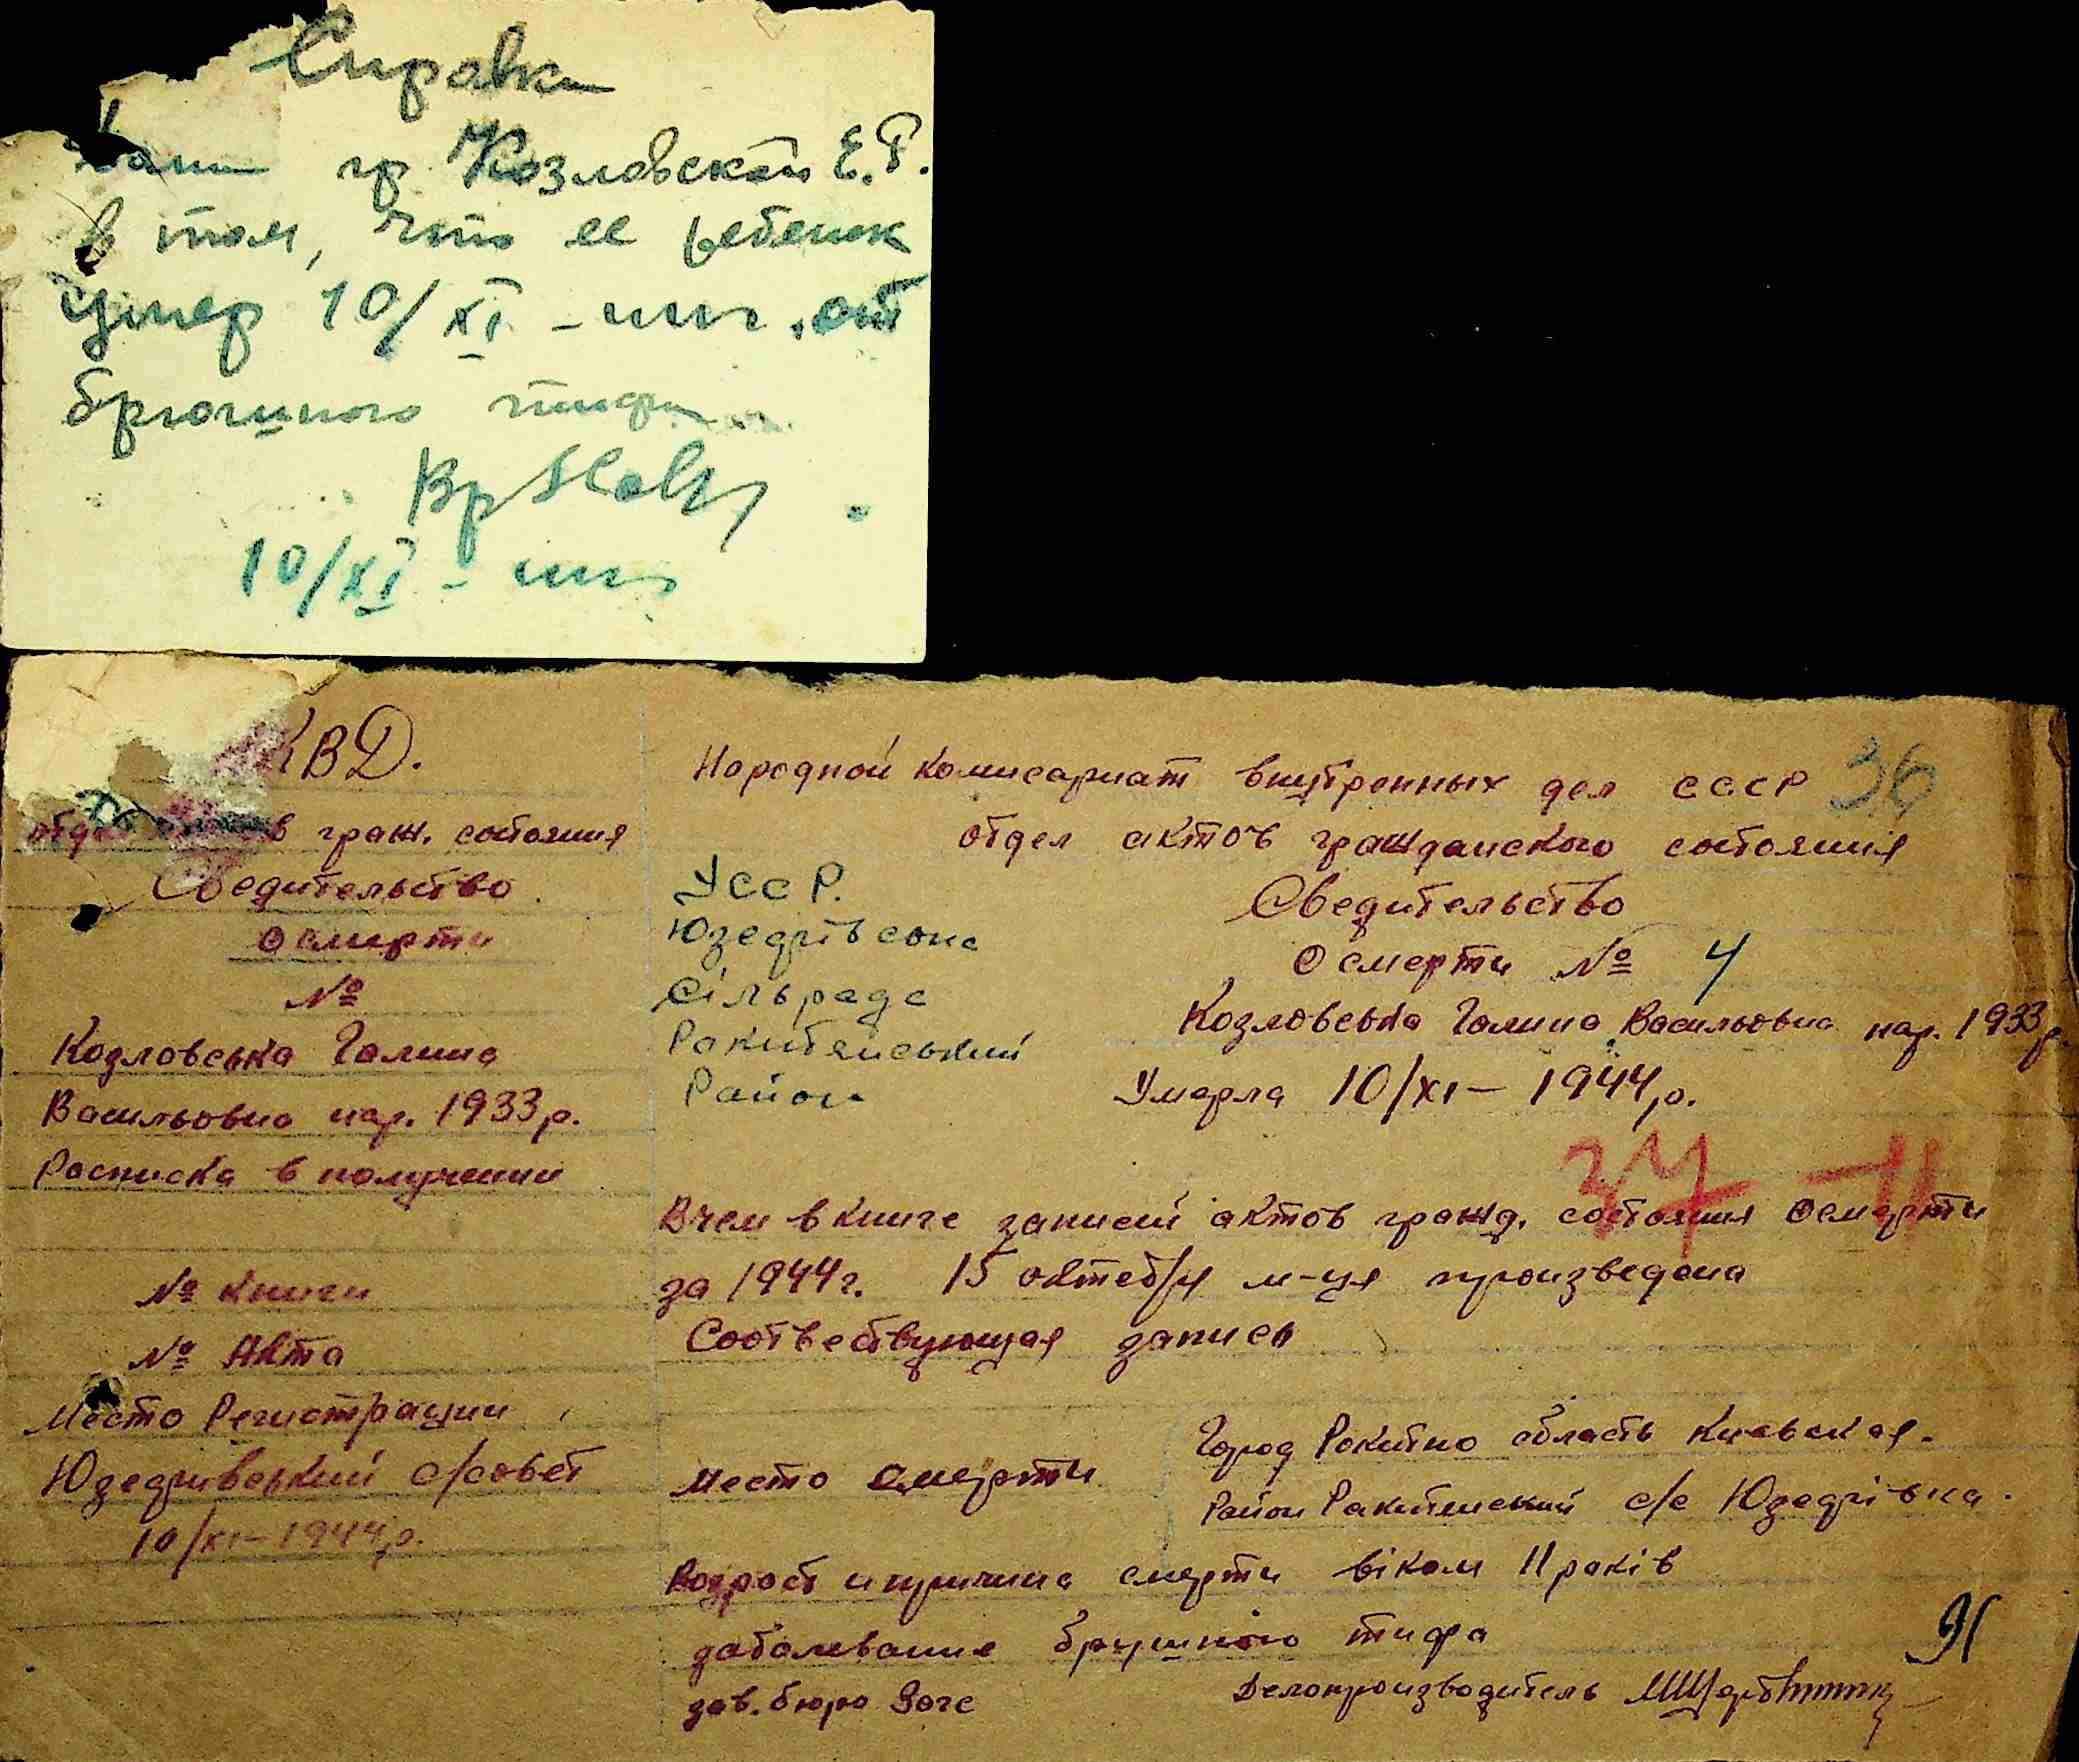 Справка
Дана гр Козловской Е.Р.
в том, что ее ребенок
умер 10/XI - от
брюшного тифа
Вр
10/XI -
КВД.
отдел в граж. состояния
Сведительство
о смерти
№
Козловська Галина
Васильовна нар. 1933 р.
Росписка в получении
№ книги
№ Акта
Место Регистрации
Юзедривський с/совет
10/XI - 1944 р.
Народной комисариат внутренных дел СССР 36
отдел актов гражданского состояния
УССР.
Юзефівська
Сільрада
Ракитянський
Район
Сведительство
о смерти № 4
Козловська Галина Васильовна нар. 1933 р.
Умерла 10/XI - 1944 р.
34 - 11
В чем в книге записий актов гражд. состояния о смерти
за 1944 г. 15 м-ця произведена
Соотвествующая запись
Место смерти
Город Рокитно область Киевская.
Район Ракитянский с/с Юзефрівка.
Возраст и причина смерти віком 11 років
заболевание брушного тифа
91
зав. бюро Загс
Делопроизводитель